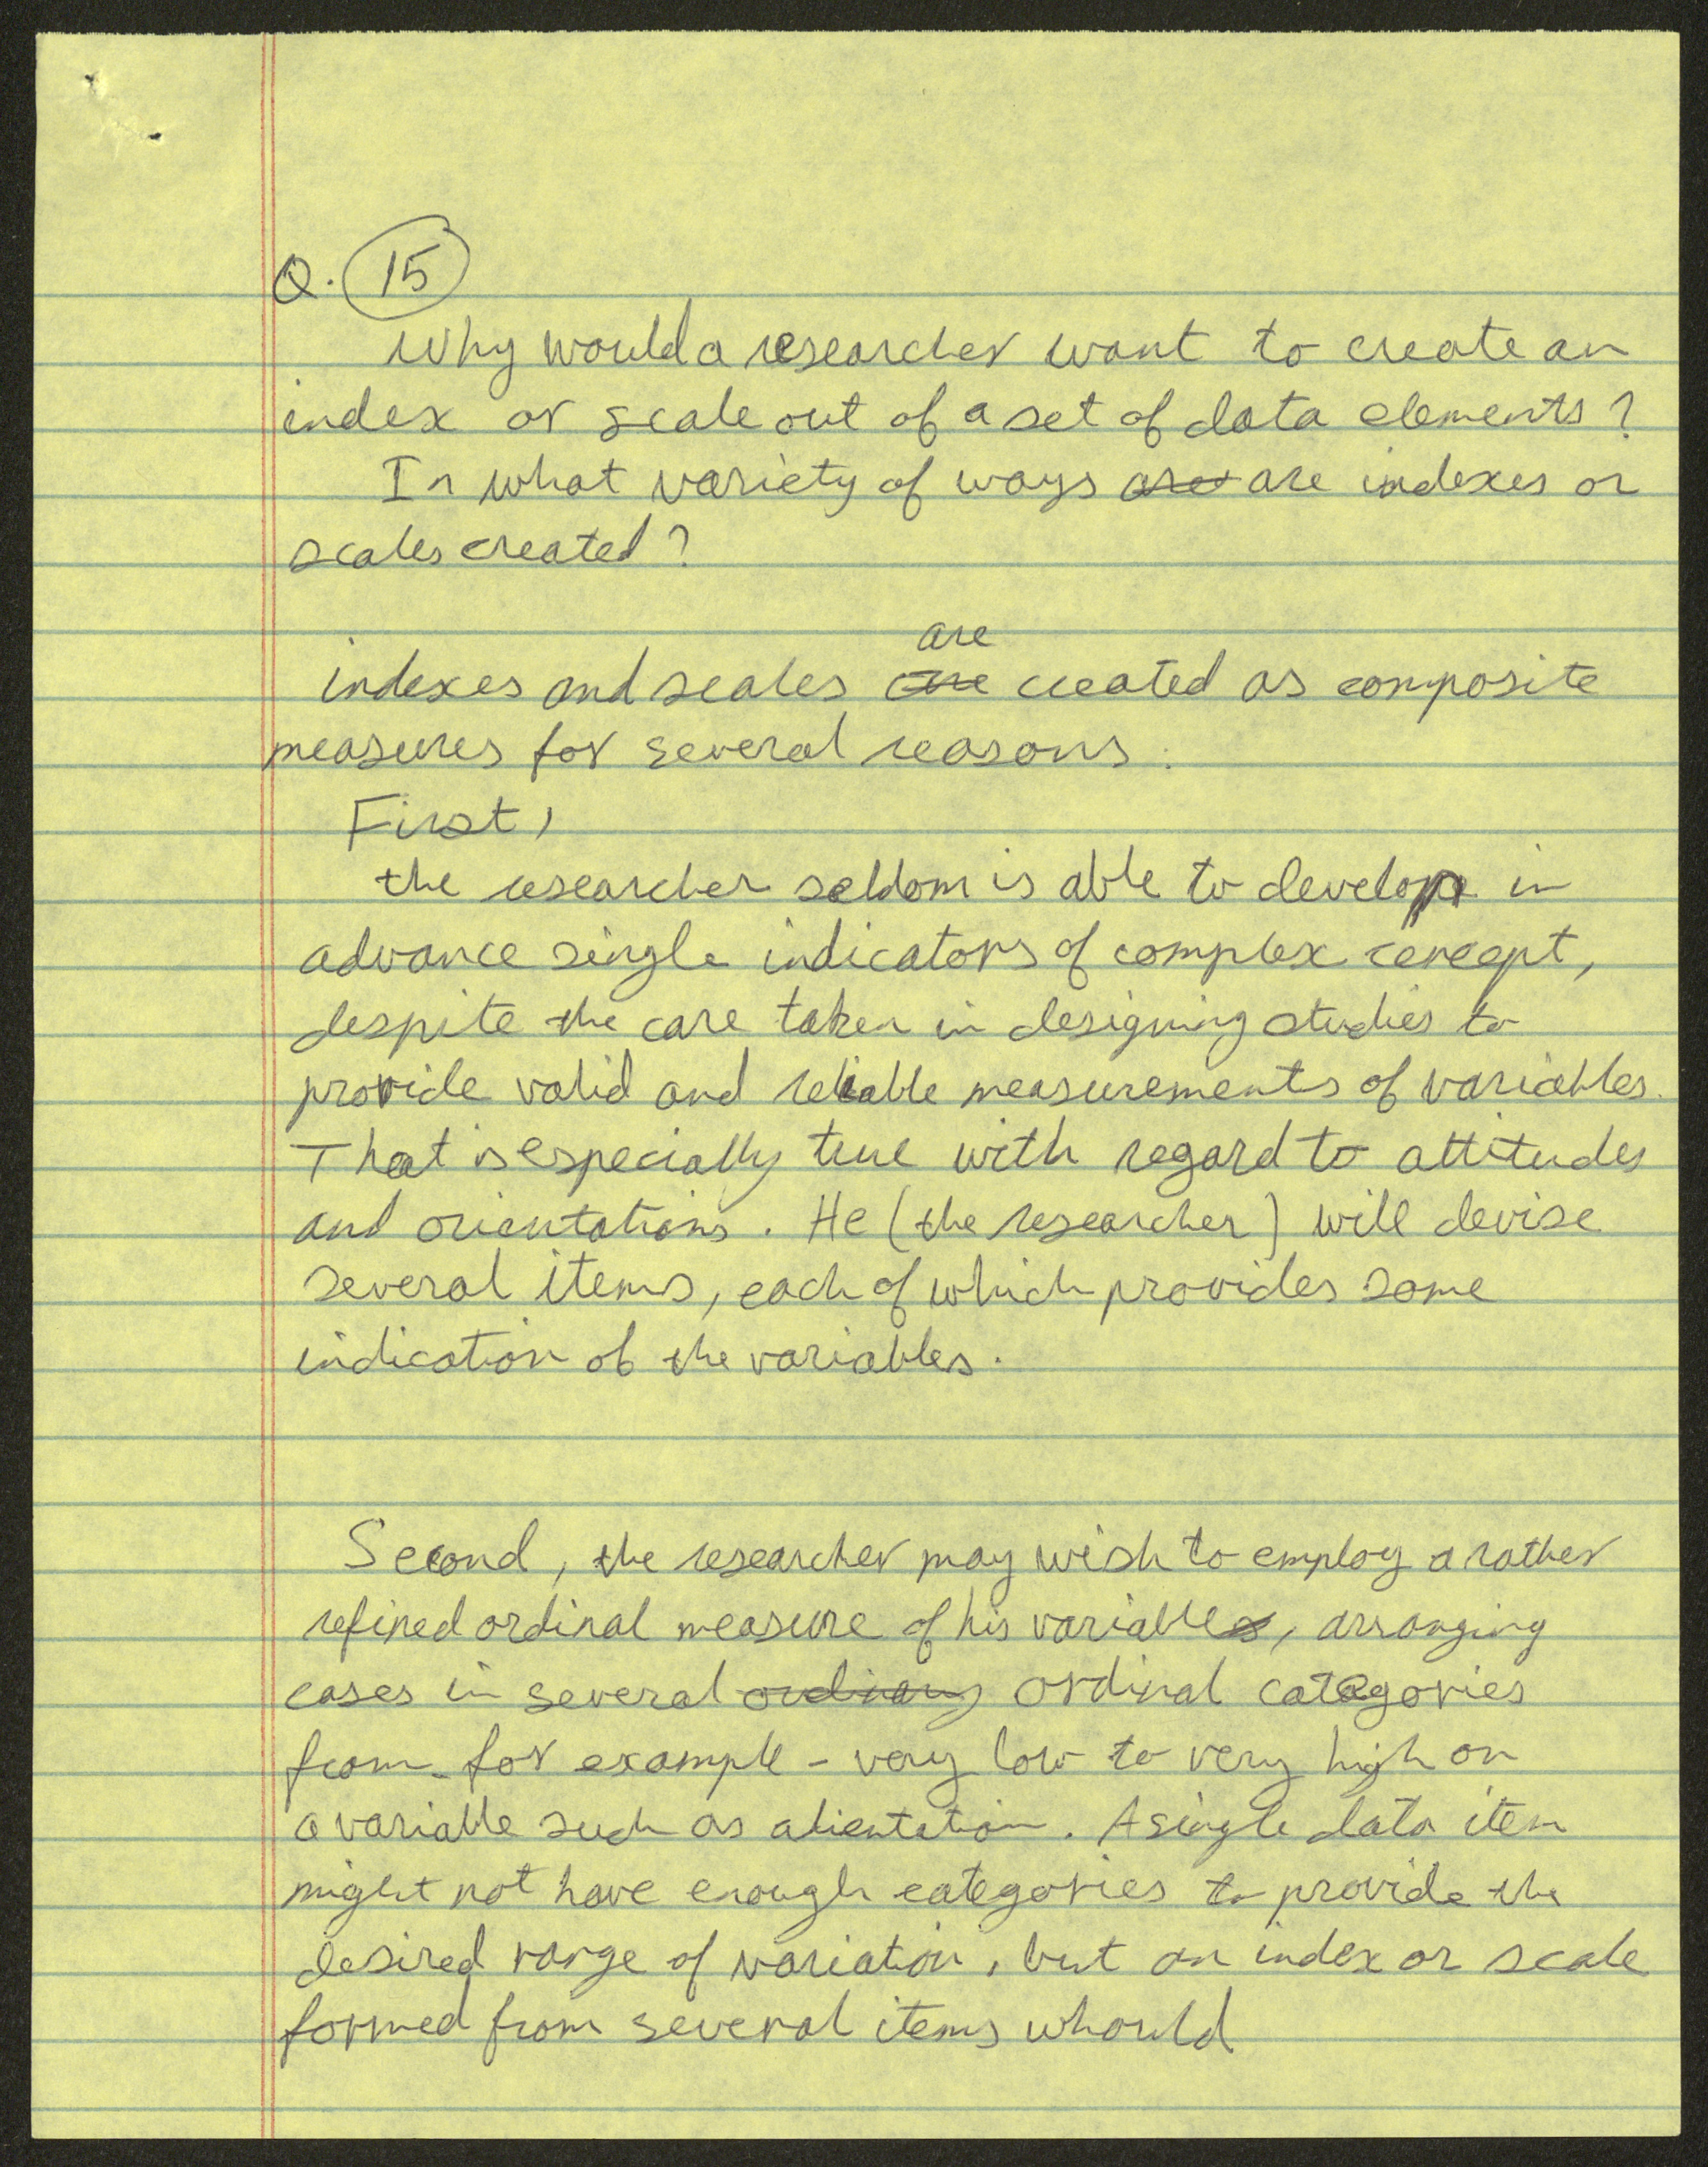 Q. 15
Why would a researcher want to create an
index or scale out of a set of data elements?
In what variety of ways are are indexes or
scales created?
are
indexes and scales are created as composite
measures for several reasons:
First,
the researcher seldom is able to develop in
advance single indicators of complex concept,
despite the care taken in designing studies to
provide valid and reliable measurements of variables.
That is especially true with regard to attitudes
and orientations. He (the researcher) will devise
several items, each of which provides some
indication of the variables.
Second, the researcher may wish to employ a rather
refined ordinal measure of his variables, arranging
cases in several ordinary ordinal categories
from - for example - very low to very high on
a variable such as alientation. A single data item
might not have enough categories to provide the
desired range of variation, but an index or scale
formed from several items whould